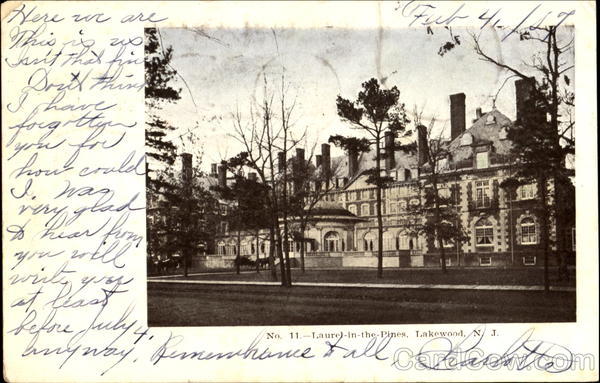 Here we are
Feb 4, 1907
This is us
Isn't that fine
Don't think
I have
forgotten
you for
how could
I. Was
very glad
to hear from
you will
write you
at least
before July 4
anyway. Remembrance to all
No. 11.—Laurel-in-the-Pines, Lakewood, N. J.
CardCow.com